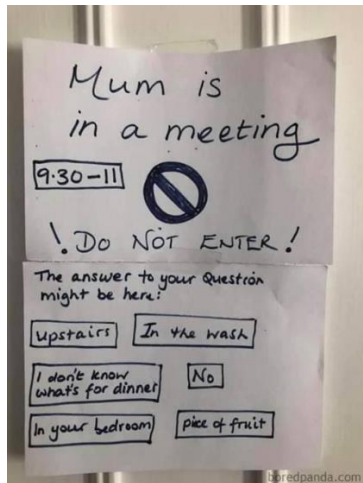 Mum is
in a meeting
9.30-11
! DO NOT ENTER !
The answer to your Question
might be here:
upstairs
In the wash
I don't know
what's for dinner
No
In your bedroom
piece of fruit
boredpanda.com